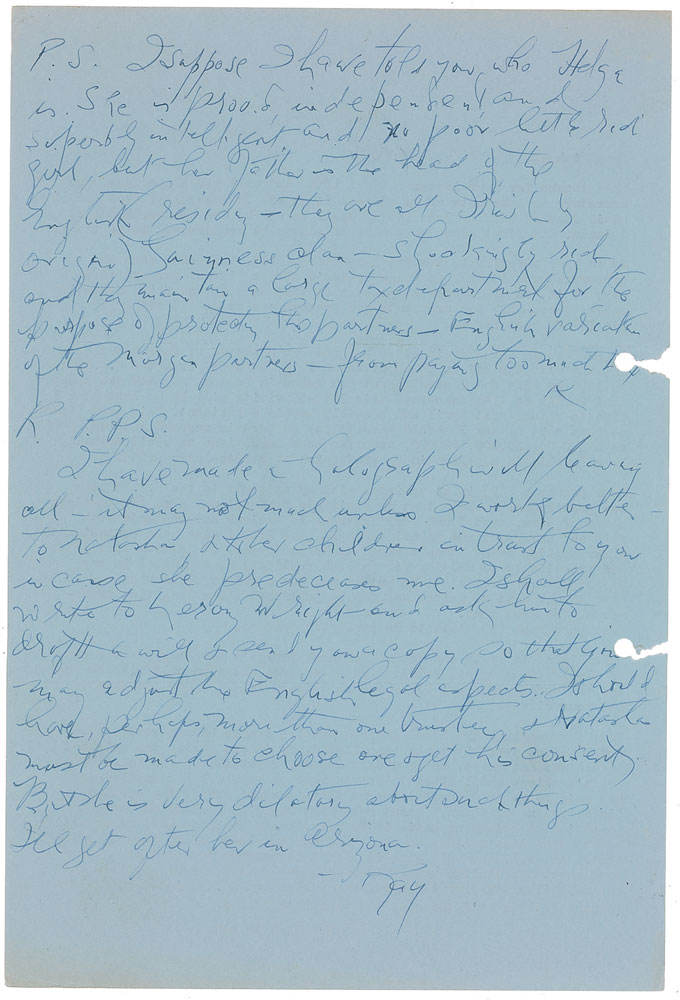 P.S. I suppose I have told you, who Helga
is. She is proud, independent and
superbly intelligent and no poor little rich
girl, but her father is the head of the
English residing — they are all Irish by
origin) Guinness clan — shockingly rich,
and they maintain a large tax department for the
purpose of protecting the partners — English variation
of the Morgan partners — from paying too much tax
R
R. P.P.S.
I have made a holograph will leaving
all — it may not much unless I work better —
to Natasha, & her children in trust to you
in case she predeceases me. I shall
write to Leroy Wright and ask him to
draft a will & send you a copy so that you
may adjust the English legal aspects. I should
have, perhaps, more than one trustee, & Natasha
must be made to choose one & get his consent.
But she is very dilatory about such things.
I'll get after her in Arizona.
— Ray